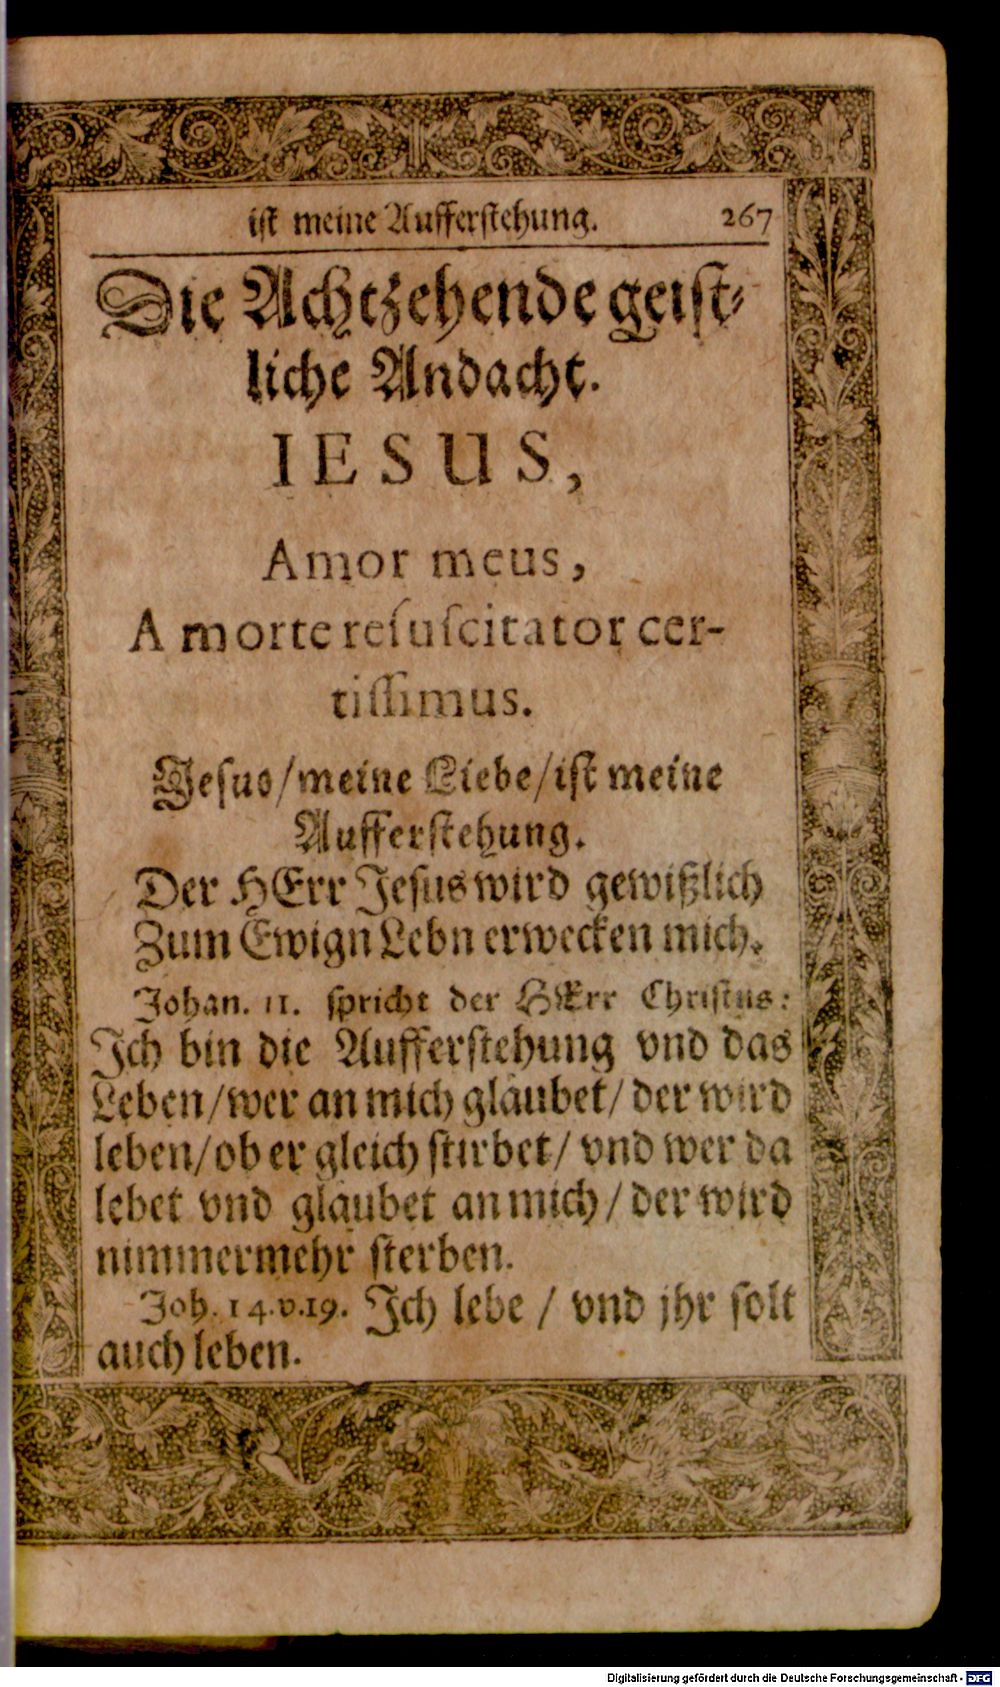 ist meine Aufferstehung. 267
Die Achtzehende geist-
liche Andacht.
IESUS,
Amor meus,
A morte resuscitator cer-
tissimus.
Jesus/meine Liebe/ist meine
Aufferstehung.
Der HErr Jesus wird gewißlich
Zum Ewign Lebn erwecken mich.
Johan. 11. spricht der HErr Christus:
Ich bin die Aufferstehung vnd das
Leben/wer an mich gläubet/der wird
leben/ob er gleich stirbet/vnd wer da
lebet vnd gläubet an mich/der wird
nimmermehr sterben.
Joh. 14.v.19. Ich lebe / vnd jhr solt
auch leben.
Digitalisierung gefördert durch die Deutsche Forschungsgemeinschaft - DFG